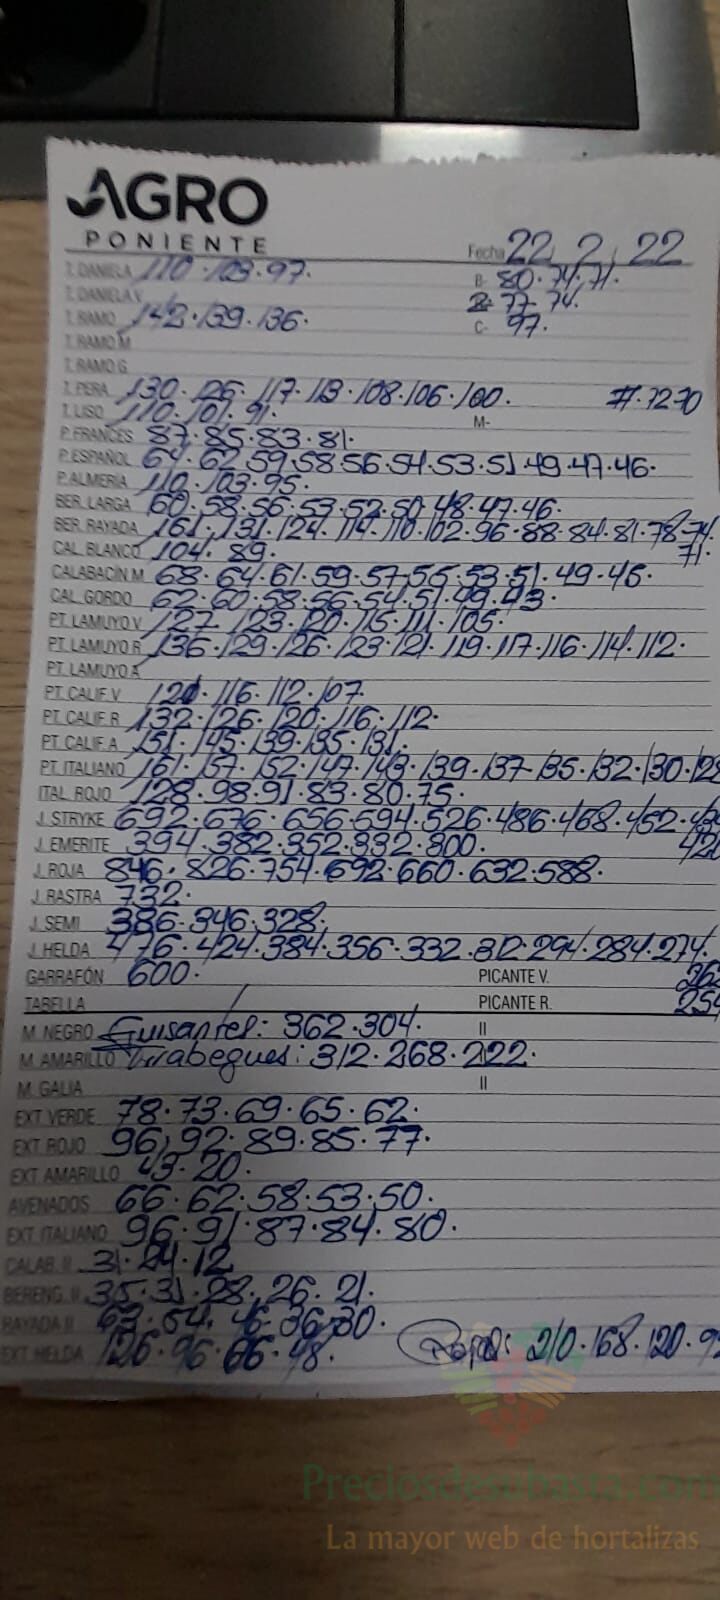 AGRO
PONIENTE
Fecha 22, 2, 22
T. DANIELA 110.103.97. B- 80.74.71.
T. DANELA V. 77-74.
T. RAMO 142.139.136. C- 97.
T. RAMO M
T. RAMO G
T. PERA 130.126.117.113.108.106.100. #.72-70
T. LISO 110.101.91. M-
P. FRANCES 87.85.83.81.
P. ESPAÑOL 64.62.59.58.56.54.53.51.49.47.46.
P. ALMERIA 110.103.95.
BER. LARGA 60.58.56.53.52.50.48.47.46.
BER. RAYADA 161.131.124.114.110.102.96.88.84.81.78-74.
71.
CAL. BLANCO 104.89.
CALABACÍN M 68.64.61.59.57-55.53.51.49.46.
CAL. GORDO 62.60.58.56.54.51.49.43.
PT. LAMUYO V 127.123.120.115.111.105.
PT. LAMUYO R 136.129.126.123.121.119.117.116.114.112.
PT. LAMUYO A
PT. CALIF. V 121.116.112.107
PT. CALIF. R 132.126.120.116.112.
PT. CALIF. A 151.145.139.135.131.
PT. ITALIANO 161.157.152.147.143.139.137-135.132.130.128
ITAL. ROJO 128.98.91.83.80.75.
J. STRYKE 692.676.656.594.526.486.468.452.
J. EMERITE 394.382.352.332.300.
J. ROJA 846.826.754.692.660.632.588.
J. RASTRA 732.
J. SEMI 386.346.328.
J. HELDA 476.424.384.356.332.312.294.284.274.
GARRAFÓN 600. PICANTE V. 262
TABELLA PICANTE R. 254
M. NEGRO Guisantel: 362.304. II
M. AMARILLO Tirabeques: 312.268.222.
M. GALIA II
EXT VERDE 78.73.69.65.62.
EXT. ROJO 96.92.89.85.77.
EXT. AMARILLO 43.20.
AVENADOS 66.62.58.53.50.
EXT. ITALIANO 96.91.87.84.80.
CALAB. II 31.24.12
BERENG. II 35.31.28.26.21.
RAYADA II 63.54.46.36.30.
EXT. HELDA 126.96.66.48. Roja: 210.168.120.92
Preciosdesubasta.com
La mayor web de hortalizas